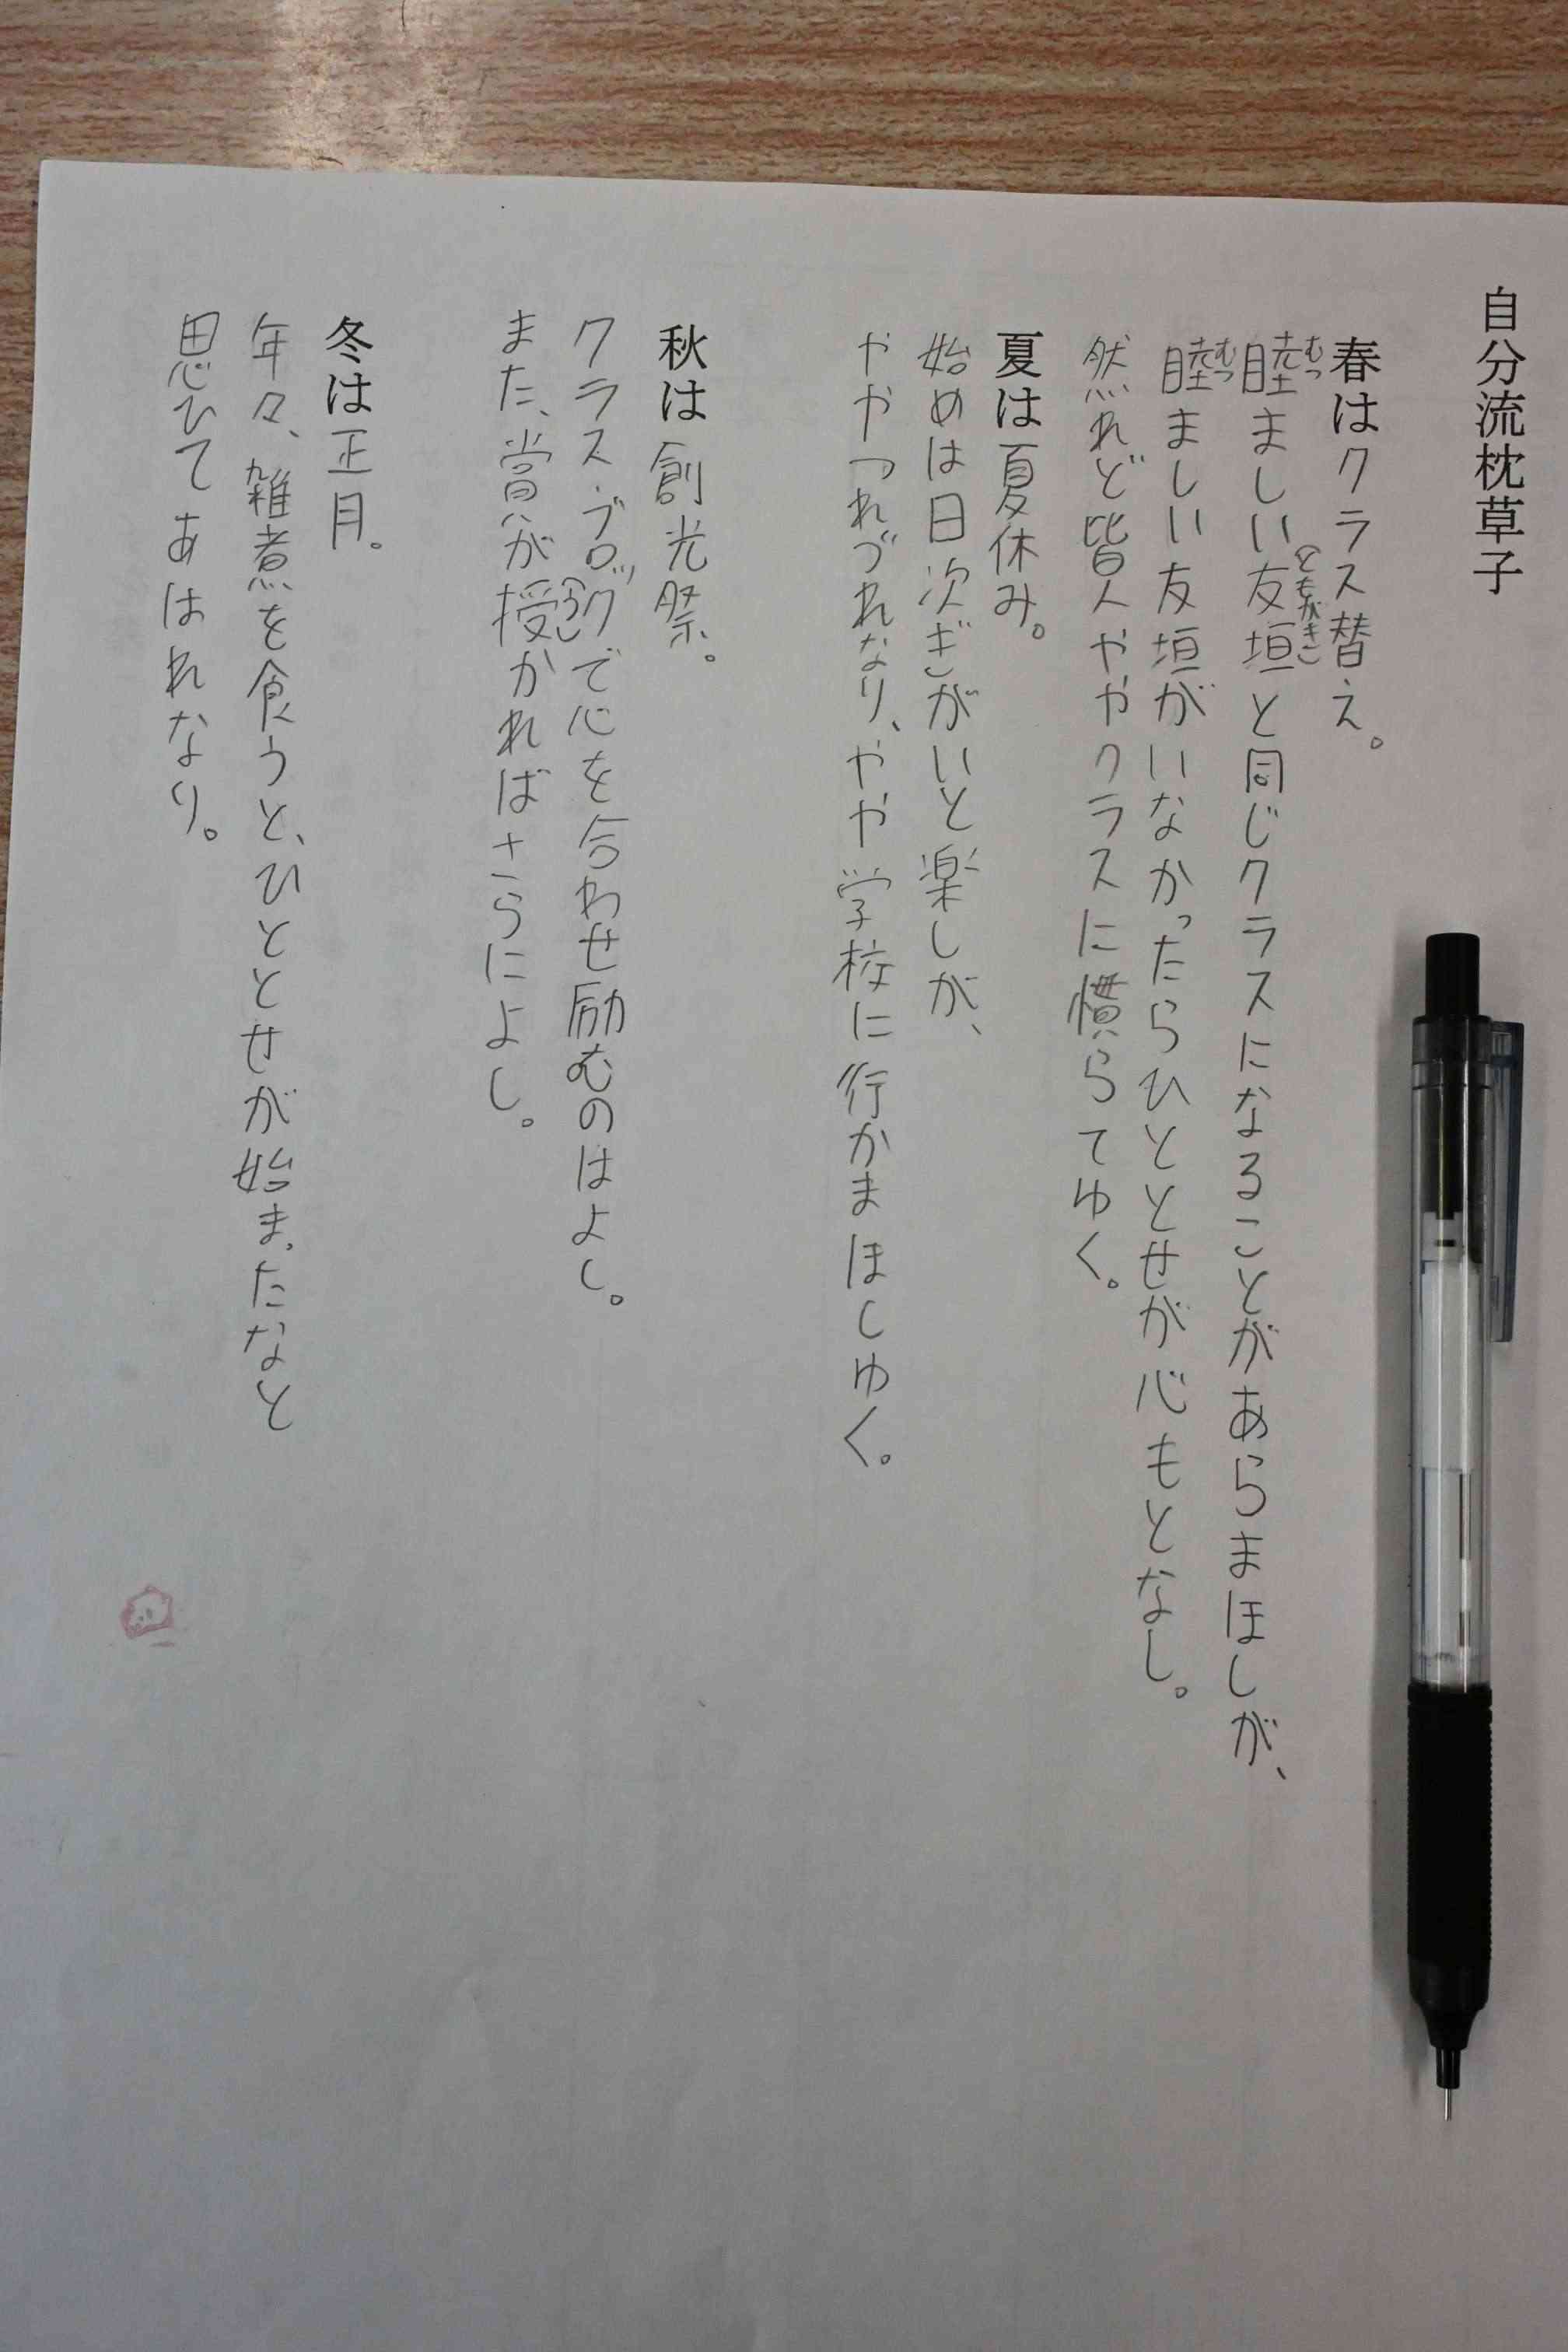 自分流枕草子
春はクラス替え。
睦ましい友垣と同じクラスになることがあらまほしが、
むつ
ともがき
睦ましい友垣がいなかったらひととせが心もとなし。
むつ
然れど皆人ややクラスに慣らてゆく。
夏は夏休み。
始めは日次ぎがいと楽しが、
ややつれづれなり、やや学校に行かまほしゆく。
秋は創光祭。
クラス・ブロックで心を合わせ励むのはよし。
また、賞が授かればさらによし。
冬は正月。
年々、雑煮を食うと、ひととせが始まったなと
思ひてあはれなり。